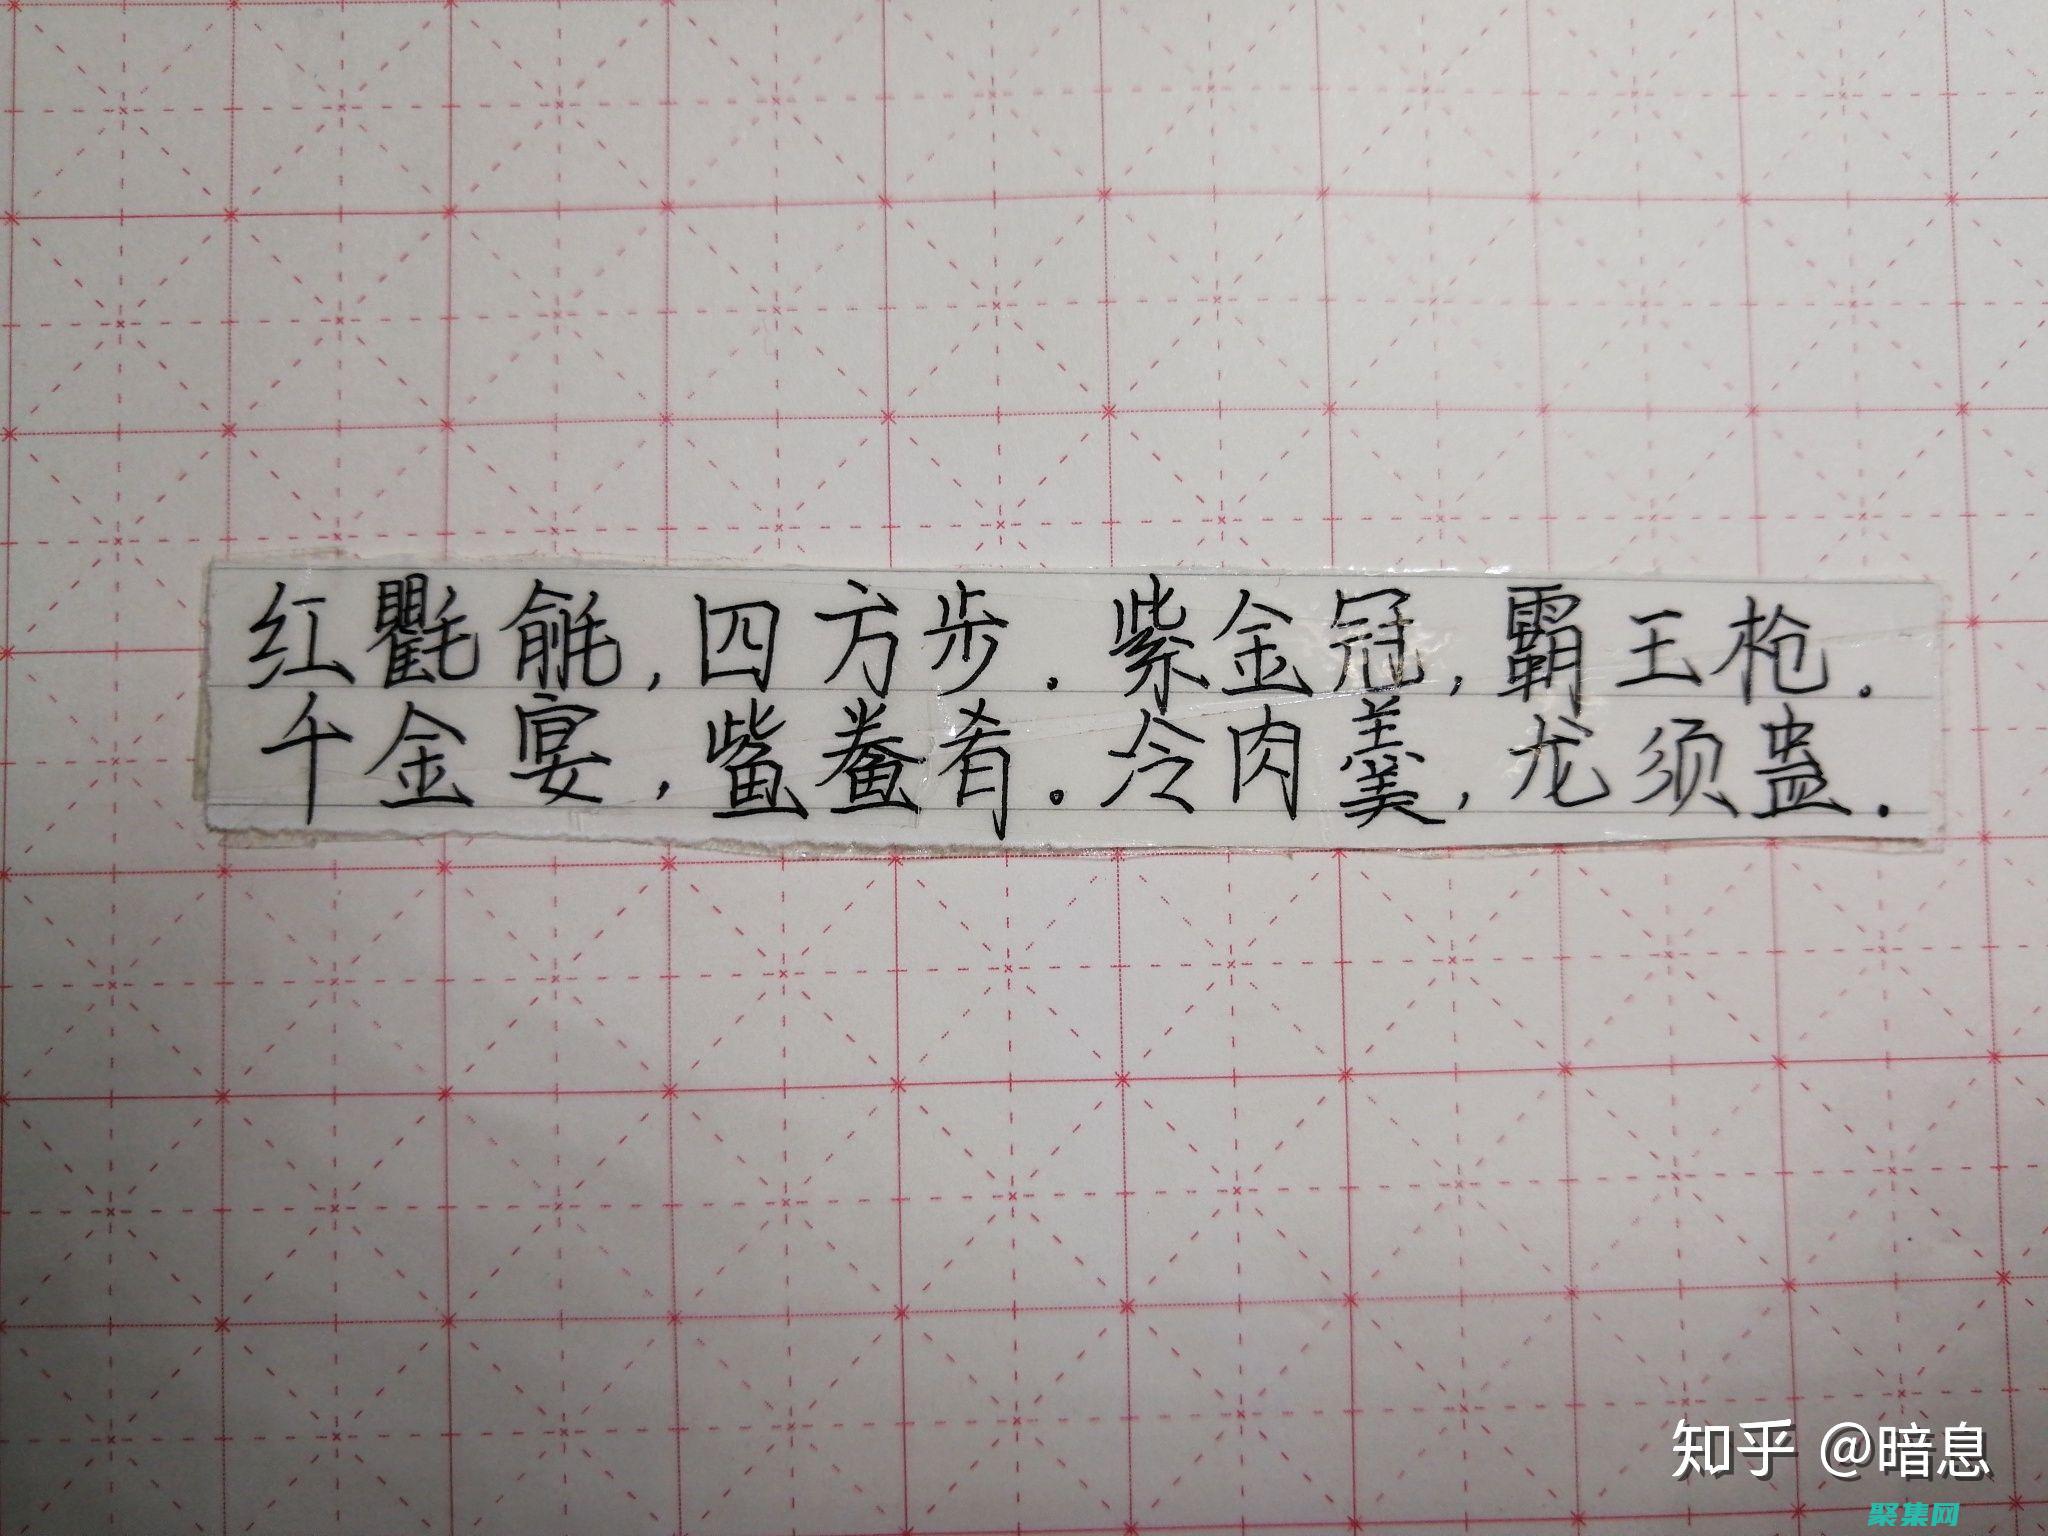 红氍毹,四方步.紫金冠,霸王枪.
千金宴,鮆鲞肴.冷肉羹,龙须蛊.
知乎 @暗息
聚集网